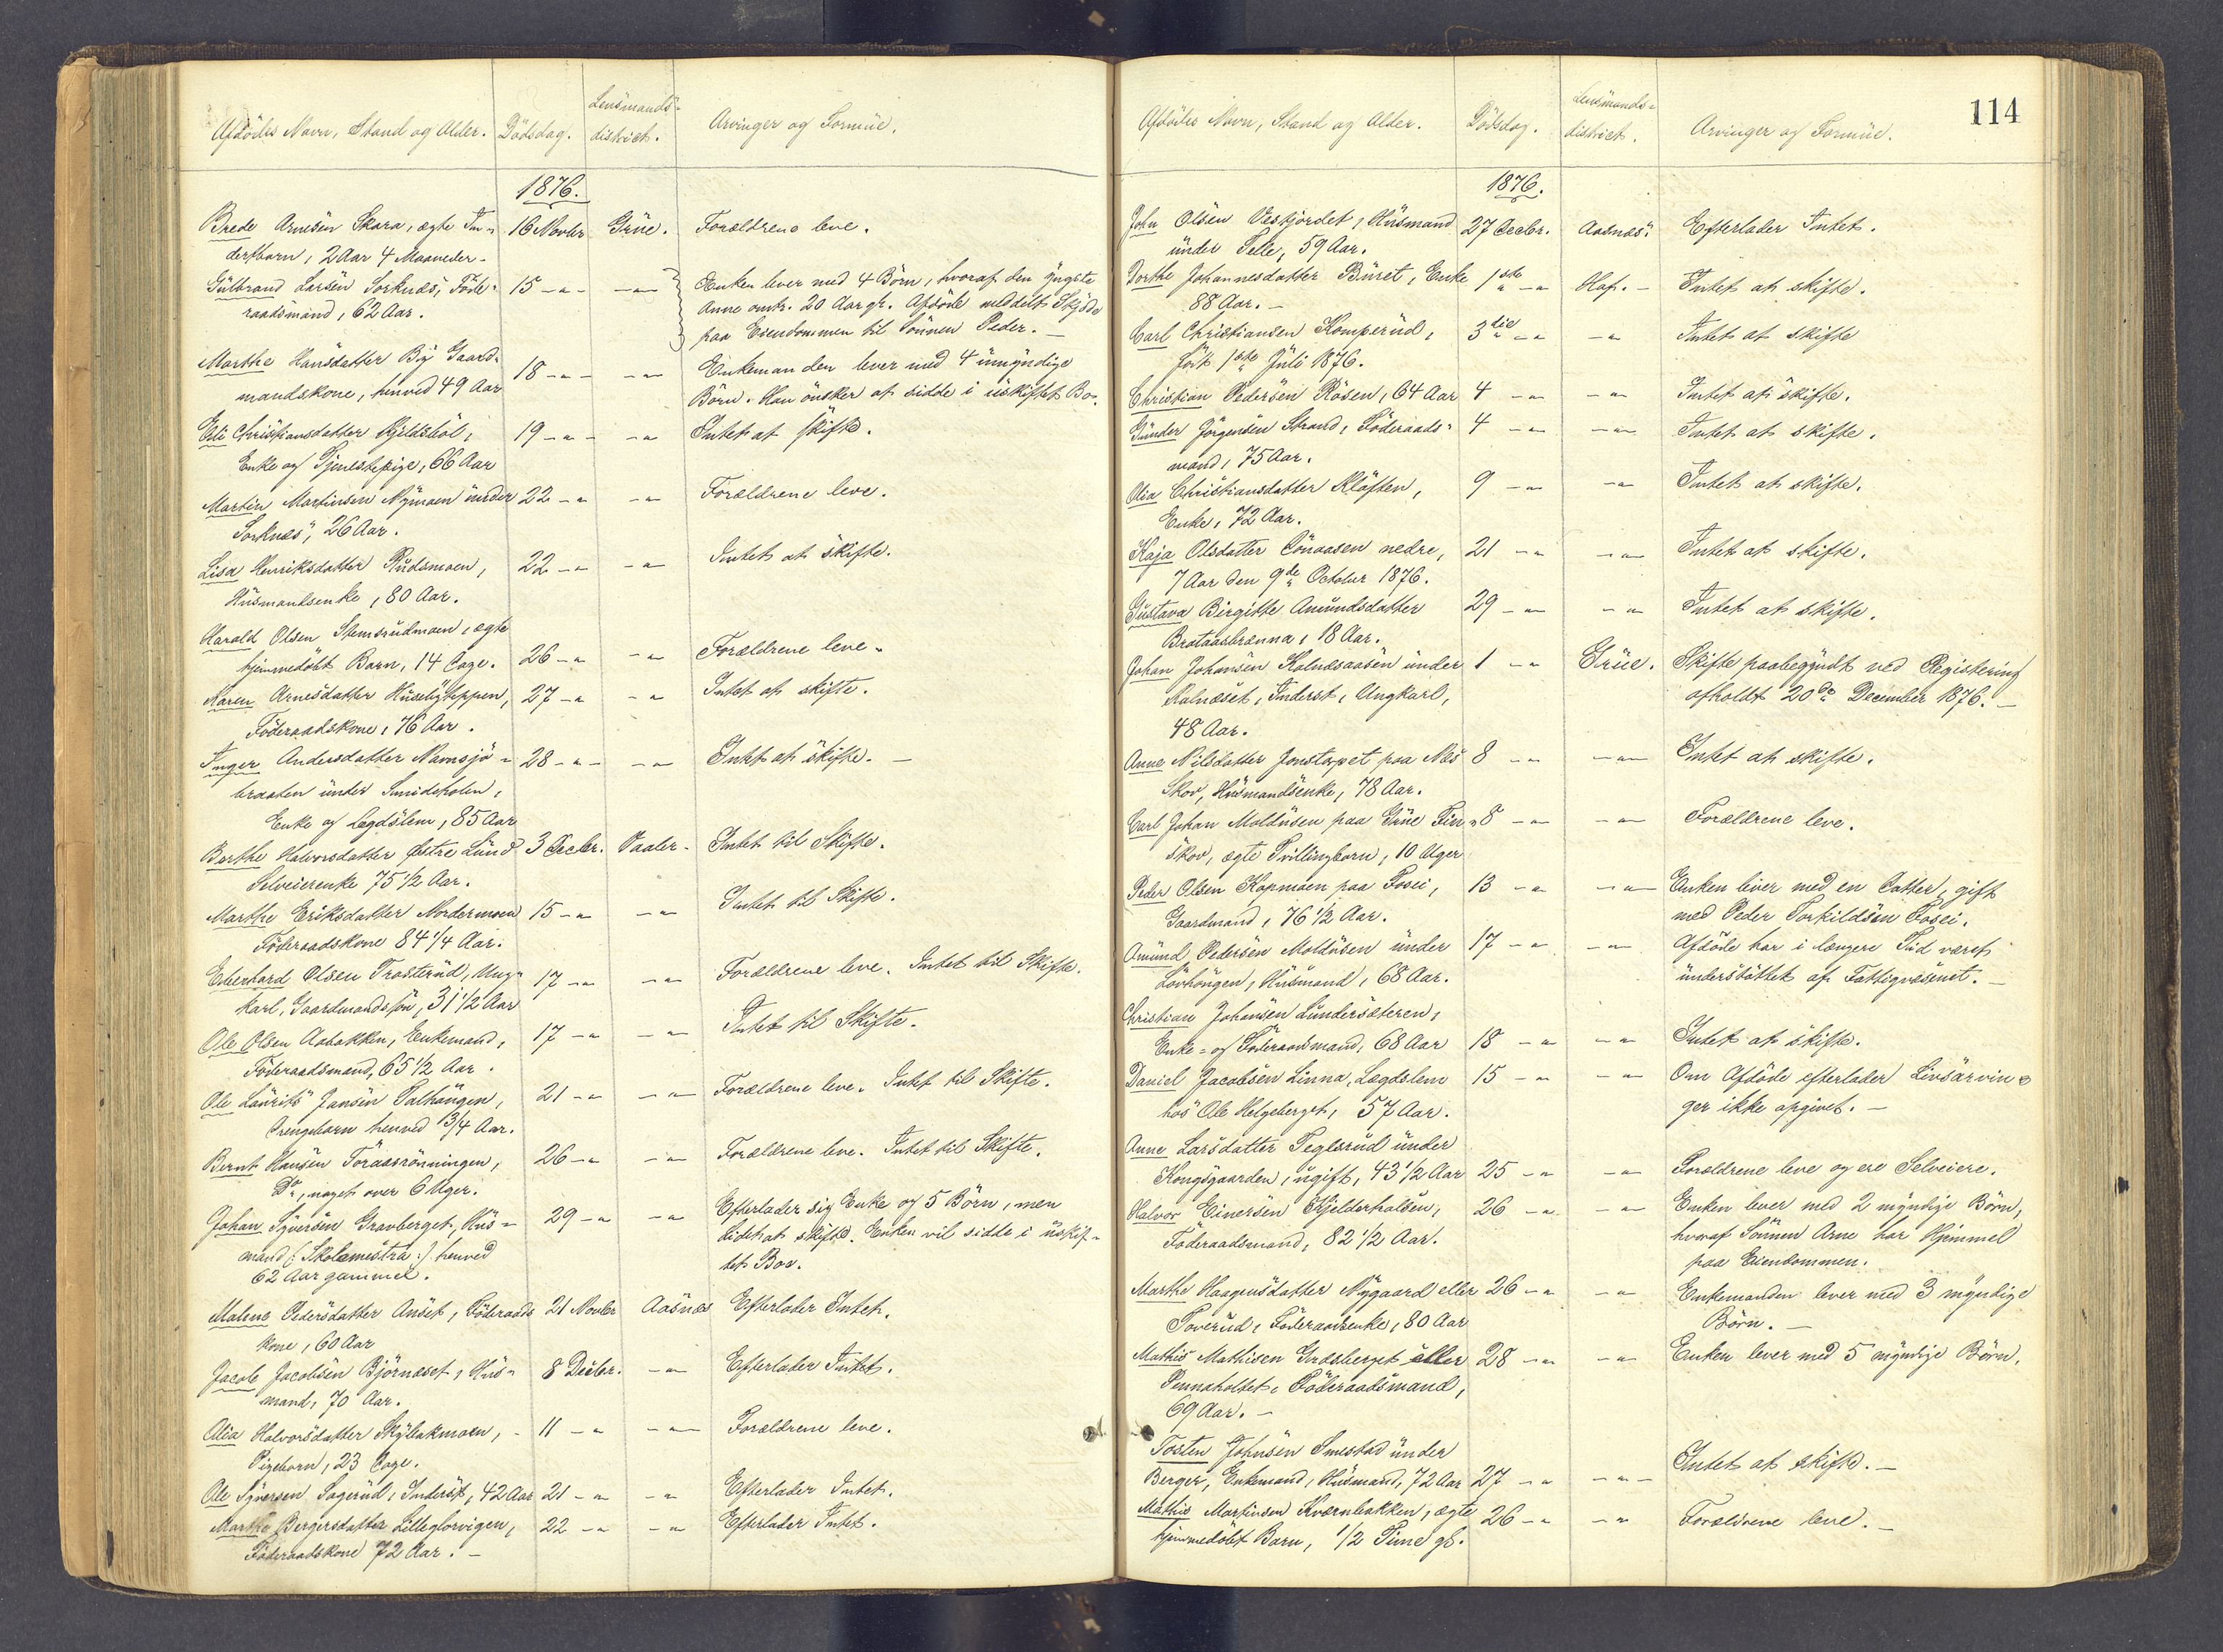 Afdödes Navn, Stand og Alder. Dödsdag. Lensmands-
district. Arvinger og Formue.
1876.
Brede Arnesen Skara, ægte In- 16 Novbr Grue. Forældrene leve.
derstbarn, 2 Aar 4 Maaneder.
Gulbrand Larsen Sorknæs, Föde- 15 -"- -"- Enken lever med 4 Börn, hvoraf den yngste
raadsmand, 62 Aar. Anne omtr. 20 Aar gl. Afdöde meddelt Skjöde
paa Eiendommen til Sönnen Peder. -
Marthe Hansdatter By Gaard- 18 -"- -"- Enkemanden lever med 4 umyndige
mandskone, henved 49 Aar Börn. Han önsker at sidde i uskiftet Bo.
Eli Christiansdatter Kjeldsböl, 19 -"- -"- Intet at skifte.
Enke og Tjenestepige, 66 Aar
Martin Martinsen Nymoen under 22 -"- -"- Forældrene leve.
Sorknæs, 26 Aar.
Lisa Henriksdatter Rudsmoen, 22 -"- -"- Intet at skifte.
Husmandsenke, 80 Aar.
Harald Olsen Stemsrudmoen, ægte
hjemmedöbt Barn, 14 Dage. 26 -"- -"- Forældrene leve.
Karen Arnesdatter Husebyteppen, 27 -"- -"- Intet at skifte.
Föderaadskone, 76 Aar.
Inger Andersdatter Namsjö- 28 -"- -"- Intet at skifte. -
braaten under Smideholen,
Enke og Lægdslem, 85 Aar
Berthe Halvorsdatter østre Lund 3 Decbr. Vaaler. Intet til Skifte.
Selveierenke 75 1/2 Aar.
Marthe Eriksdatter Nordermoen 15 -"- -"- Intet til Skifte.
Föderaadskone 84 1/4 Aar.
Eberhard Olsen Trösterud, Ung- 17 -"- -"- Forældrene leve. Intet til Skifte.
karl, Gaardmandssön, 31 1/2 Aar
Ole Olsen Aabakken, Enkemand, 17 -"- -"- Intet til Skifte.
Föderaadsmand, 65 1/2 Aar.
Ole Laurits Jansen Salhaugen, 21 -"- -"- Forældrene leve. Intet til Skifte.
Drengebarn henved 1 3/4 Aar.
Bernt Hansen Toraasrönningen, 26 -"- -"- Forældrene leve. Intet til Skifte.
Do, noget over 6 Uger.
Johan Syversen Gravberget, Hus- 29 -"- -"- Efterlader sig Enke og 5 Börn, men
mand /: Skolemestra :/ henved lidet at skifte. Enken vil sidde i uskif-
62 Aar gammel. tet Boe.
Malene Pedersdatter Anset, Föderaads 21 Novbr Aasnæs Efterlader Intet.
kone, 60 Aar
Jacob Jacobsen Björnæset, Hus- 8 Decbr. -"- Efterlader Intet.
mand, 70 Aar.
Olia Halvorsdatter Skybakmoen, - 11 -"- -"- Forældrene leve.
Pigebarn, 23 Dage.
Ole Syversen Sagerud, Inderst, 42 Aar 21 -"- -"- Efterlader Intet.
Marthe Bergersdatter Lilleglorvigen, 22 -"- -"- Efterlader Intet.
Föderaadskone 72 Aar. -
114
Afdödes Navn, Stand og Alder. Dödsdag. Lensmands-
district. Arvinger og Formue.
1876.
John Olsen Vestjordet, Husmand 27 Decbr. Aasnæs. Efterlader Intet.
under Selle, 59 Aar.
Dorthe Johannesdatter Buret, Enke 1ste -"- Hof. - Intet at skifte.
88 Aar. -
Carl Christiansen Komperud, 3die -"- -"- Intet at skifte
födt 1ste Juli 1876.
Christian Pedersen Rösen, 64 Aar 4 -"- -"- Intet at skifte.
Gunder Jörgensen Strand, Föderaads- 4 -"- -"- Intet at skifte.
mand, 75 Aar.
Olia Christiansdatter Kløften, 9 -"- -"- Intet at skifte.
Enke, 72 Aar.
Kaja Olsdatter Dönaasen nedre, 21 -"- -"- Intet at skifte.
7 Aar den 9de October 1876.
Gustava Birgitte Amundsdatter 29 -"- -"- Intet at skifte.
Brataasbrænna, 18 Aar.
Johan Johansen Kalnæsaasen under 1 -"- Grue. Skifte paabegyndt ved Registering
Kalnæset, Inderst, Ungkarl, afholdt 20de December 1876. -
48 Aar.
Anne Nilsdatter Jonstapet paa Næs 8 -"- -"- Intet at skifte.
Skov, Husmandsenke, 78 Aar.
Carl Johan Moldusen paa Grue Fin- 8 -"- -"- Forældrene leve.
skov, ægte Tvillingbarn, 10 Uger
Peder Olsen Kopmoen paa Fosei, 13 -"- -"- Enken lever med en Datter, gift
Gaardmand, 76 1/2 Aar. med Peder Torkildsen Fosei.
Amund Pedersen Moldusen under 17 -"- -"- Afdöde har i længere Tid været
Lövhaugen, Husmand, 68 Aar. understöttet af Fattigvæsenet. -
Christian Johansen Lundersæteren,
Enke- og Föderaadsmand, 68 Aar 18 -"- -"- Intet at skifte.
Daniel Jacobsen Linna, Lægdslem 15 -"- -"- Om Afdöde efterlader Livsarvin-
hos Ole Helgeberget, 57 Aar. ger ikke opgivet. -
Anne Larsdatter Teglsrud under
Kongsgaarden, ugift, 43 1/2 Aar 25 -"- -"- Forældrene leve og ere Selveiere.
Halvor Einersen Skjelderholsen, 26 -"- -"- Enken lever med 2 myndige Börn,
Föderaadsmand, 82 1/2 Aar. hvoraf Sönnen Arne har Hjemmel
paa Eiendommen.
Marthe Haagensdatter Nygaard eller 26 -"- -"- Enkemanden lever med 3 myndige
Toverud, Föderaadsenke, 80 Aar Börn. -
Mathis Mathisen Græsberget eller 28 -"- -"- Enken lever med 5 myndige Börn.
Pennaholtet, Föderaadsmand,
69 Aar. -
Tosten Johnsen Smestad under
Berger, Enkemand, Husmand, 72 Aar 27 -"- -"- Intet at skifte. -
Mathis Martinsen Kværnbakken, ægte 26 -"- -"- Forældrene leve. -
hjemmedöbt Barn, 1/2 Time gl.